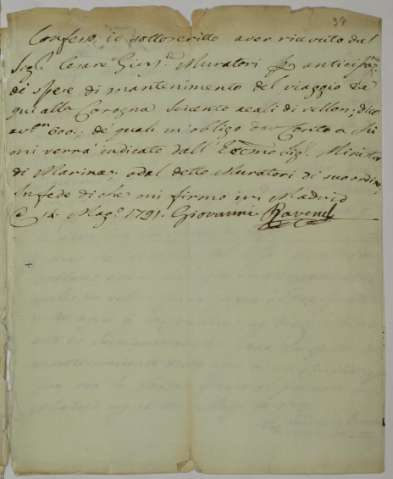 Confesso io sottoscritto aver ricevuto dal
Sig.r Cesare Muratori anticipaz.e
di spese di mantenimento del viaggio da
qui alla Corogna reali di vellon, dico
600; de quali mi obligo dar conto a chi
mi verrà indicato dall' Eccmo Sig. Ministro
di Marina, o dal detto Muratori di suo ordine
In fede di che mi firmo in Madrid
14 Mag.o 1791. Giovanni Ravenet